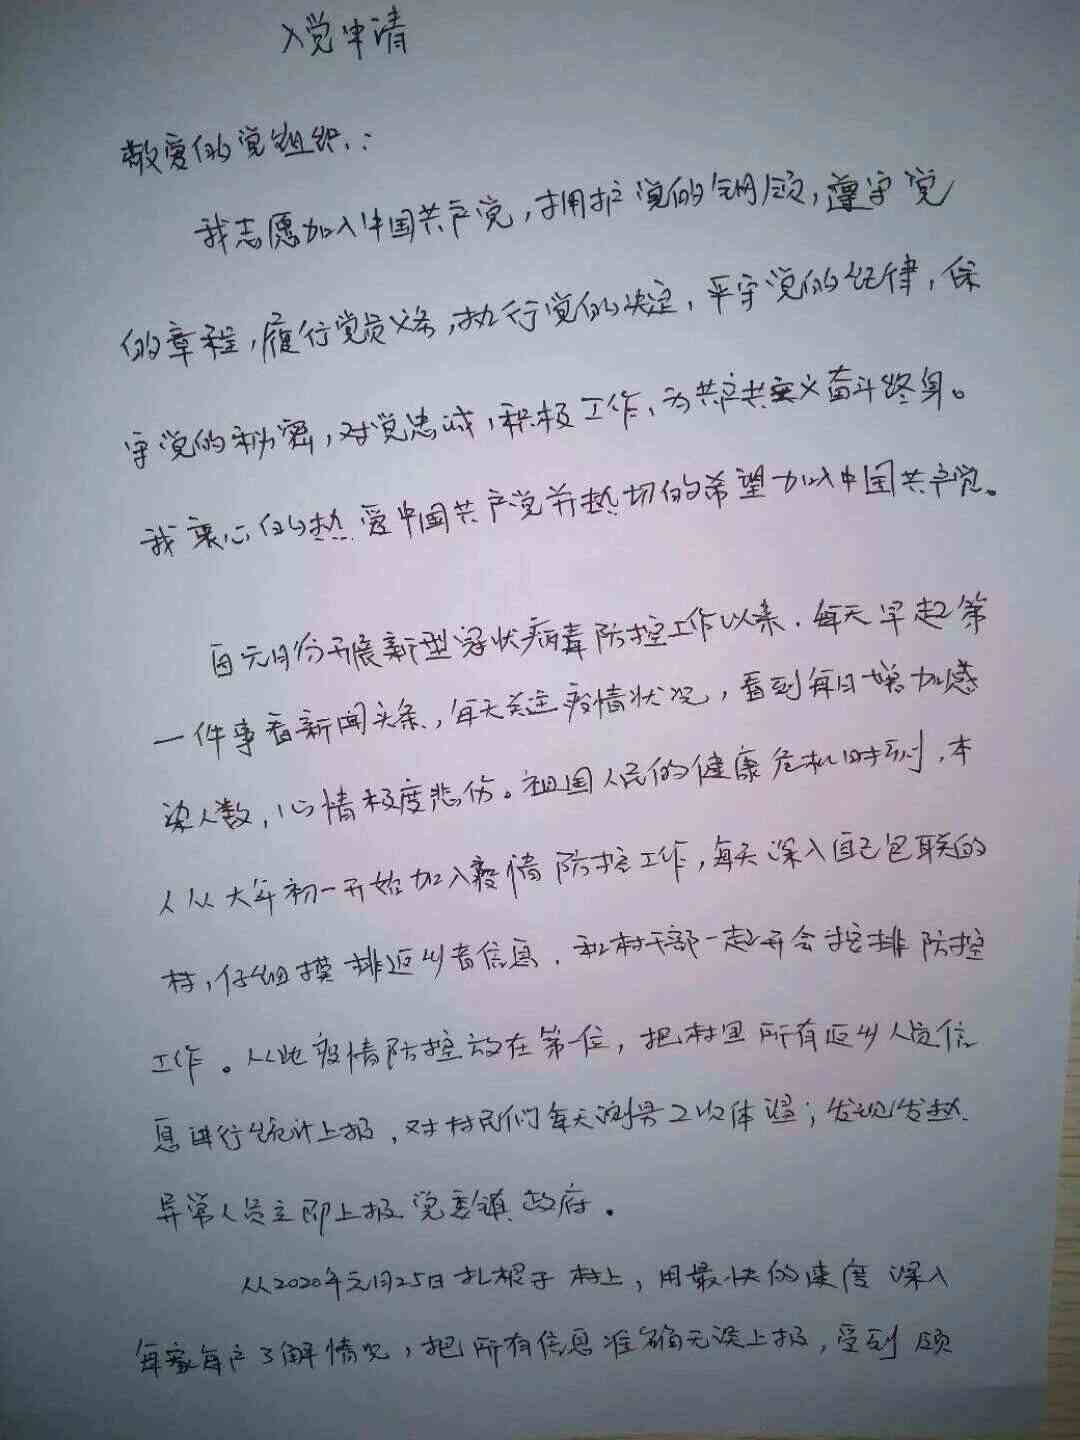 入党申请
敬爱的党组织：
我志愿加入中国共产党，拥护党的纲领，遵守党
的章程，履行党员义务，执行党的决定，严守党的纪律，保
守党的秘密，对党忠诚，积极工作，为共产主义奋斗终身。
我衷心的热爱中国共产党并热切的希望加入中国共产党。
自元月份开展新型冠状病毒防控工作以来，每天早起第
一件事看新闻头条，每天关注疫情状况，看到每日增加感
染人数，心情极度悲伤。祖国人民的健康危机时刻，本
人从大年初一开始加入疫情防控工作，每天深入自己包联的
村，仔细摸排返乡者信息，和村干部一起开会挖排防控
工作。从此疫情防控放在第一位，把村里所有返乡人员信
息进行统计上报，对村民们每天测得2次体温；发现发热
异常人员立即上报党委镇政府。
从2020年元月25日扎根于村上，用最快的速度深入
每家每户了解情况，把所有信息准确无误上报，受到领